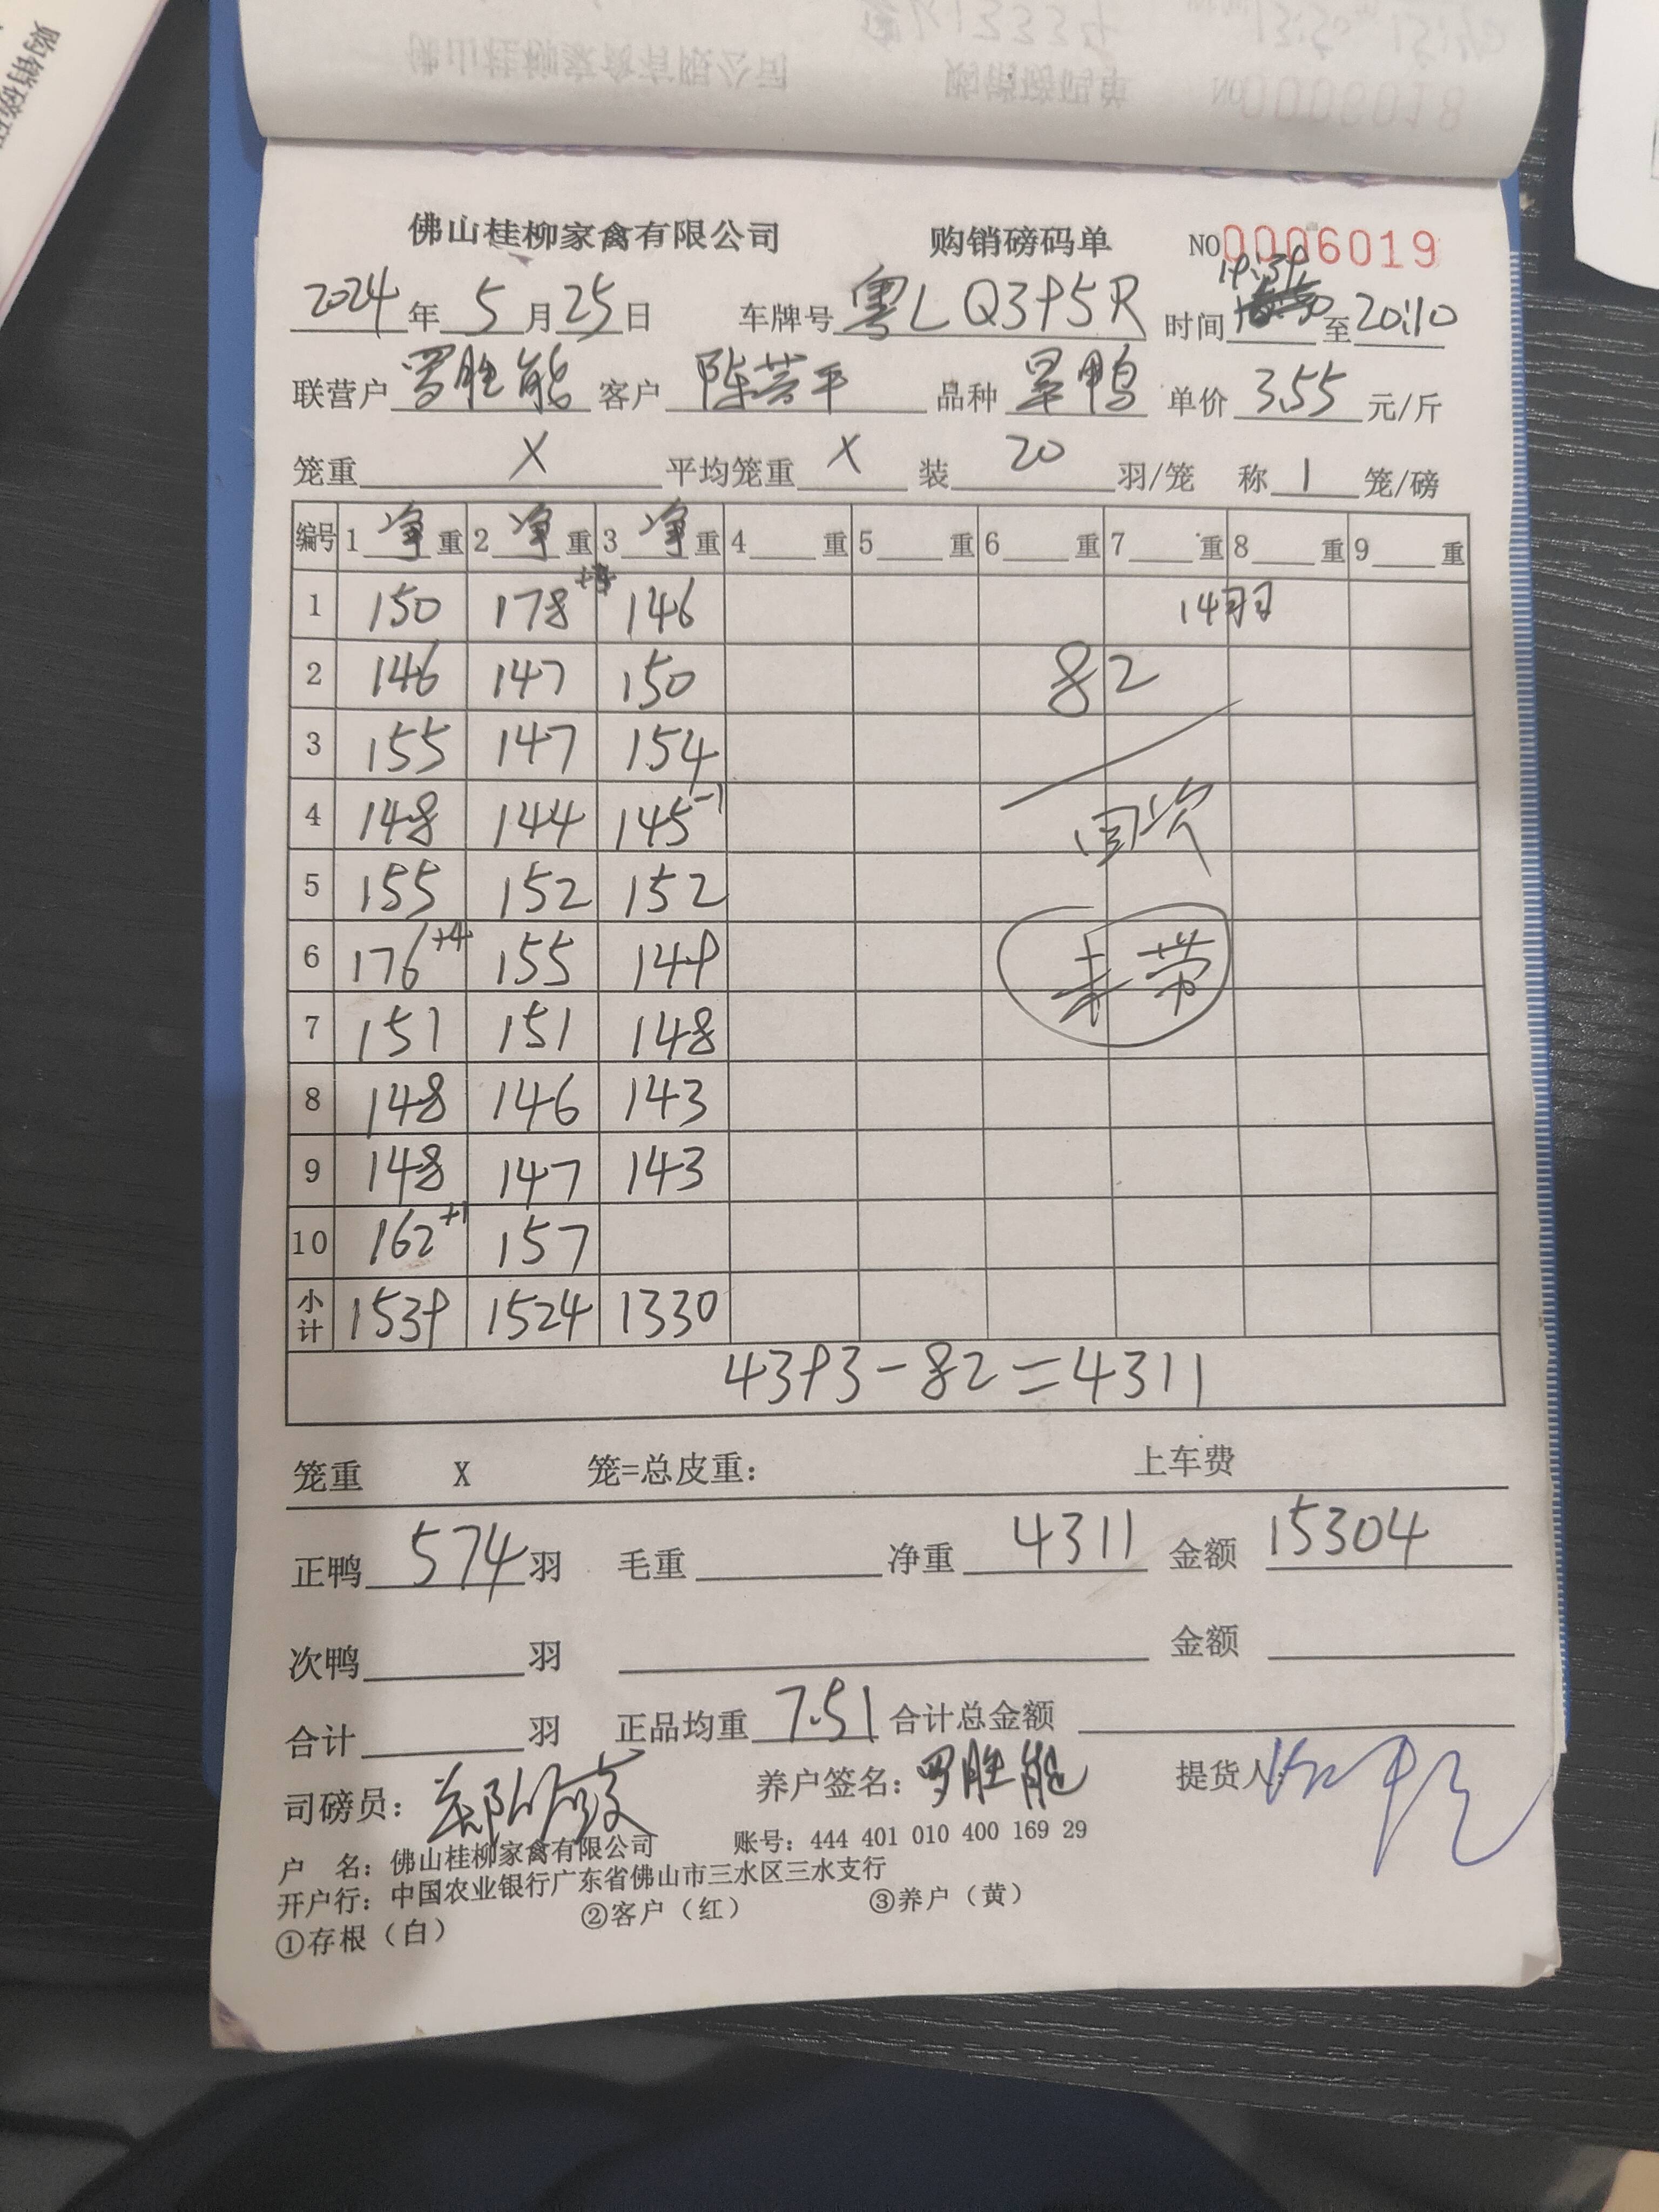 购销磅码
佛山桂柳家禽有限公司 购销磅码单 NO 0006018
佛山桂柳家禽有限公司 购销磅码单 NO 0006019
2024年5月25日 车牌号 粤LQ395R 时间 19:39 至 20:10
联营户 罗胜能 客户 陈芸平 品种 旱鸭 单价 3.55 元/斤
笼重 X 平均笼重 X 装 20 羽/笼 称 1 笼/磅
编号 1 净 重 2 净 重 3 净 重 4 重 5 重 6 重 7 重 8 重 9 重
1 150 178 146 14羽
2 146 147 150 82
3 155 147 154
4 148 144 145-1 回次
5 155 152 152
6 176+4 155 149 未带
7 151 151 148
8 148 146 143
9 148 147 143
10 162+1 157
小计 1539 1524 1330
4393-82=4311
笼重 X 笼=总皮重: 上车费
正鸭 574 羽 毛重 净重 4311 金额 15304
次鸭 羽 金额
合计 羽 正品均重 7.51 合计总金额
司磅员: 养户签名: 罗胜能 提货人:
户 名: 佛山桂柳家禽有限公司 账号: 444 401 010 400 169 29
开户行: 中国农业银行广东省佛山市三水区三水支行
①存根(白) ②客户(红) ③养户(黄)